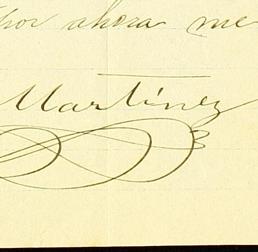 Por ahora me
Martínez